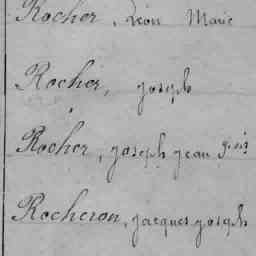 Rocher, Léon Marie
Rocher, Joseph
Rocher, Joseph Jean
Rocheron, Jacques Joseph